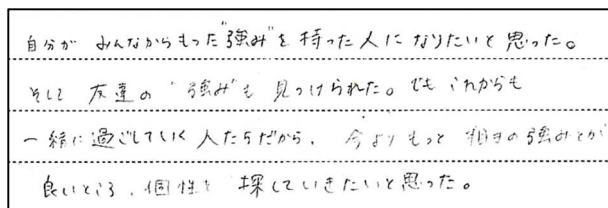 自分が みんなからもった"強み"を 持った人に なりたいと 思った。
そして 友達の "強み"も 見つけられた。でも これからも
一緒に過ごしていく 人たちだから、今より もっと 相手の強みとか
良いところ、個性を 探していきたいと思った。